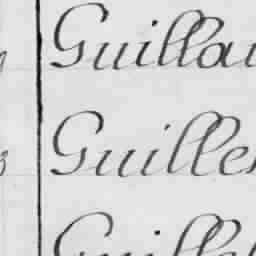 Guillau
Guille
Guille